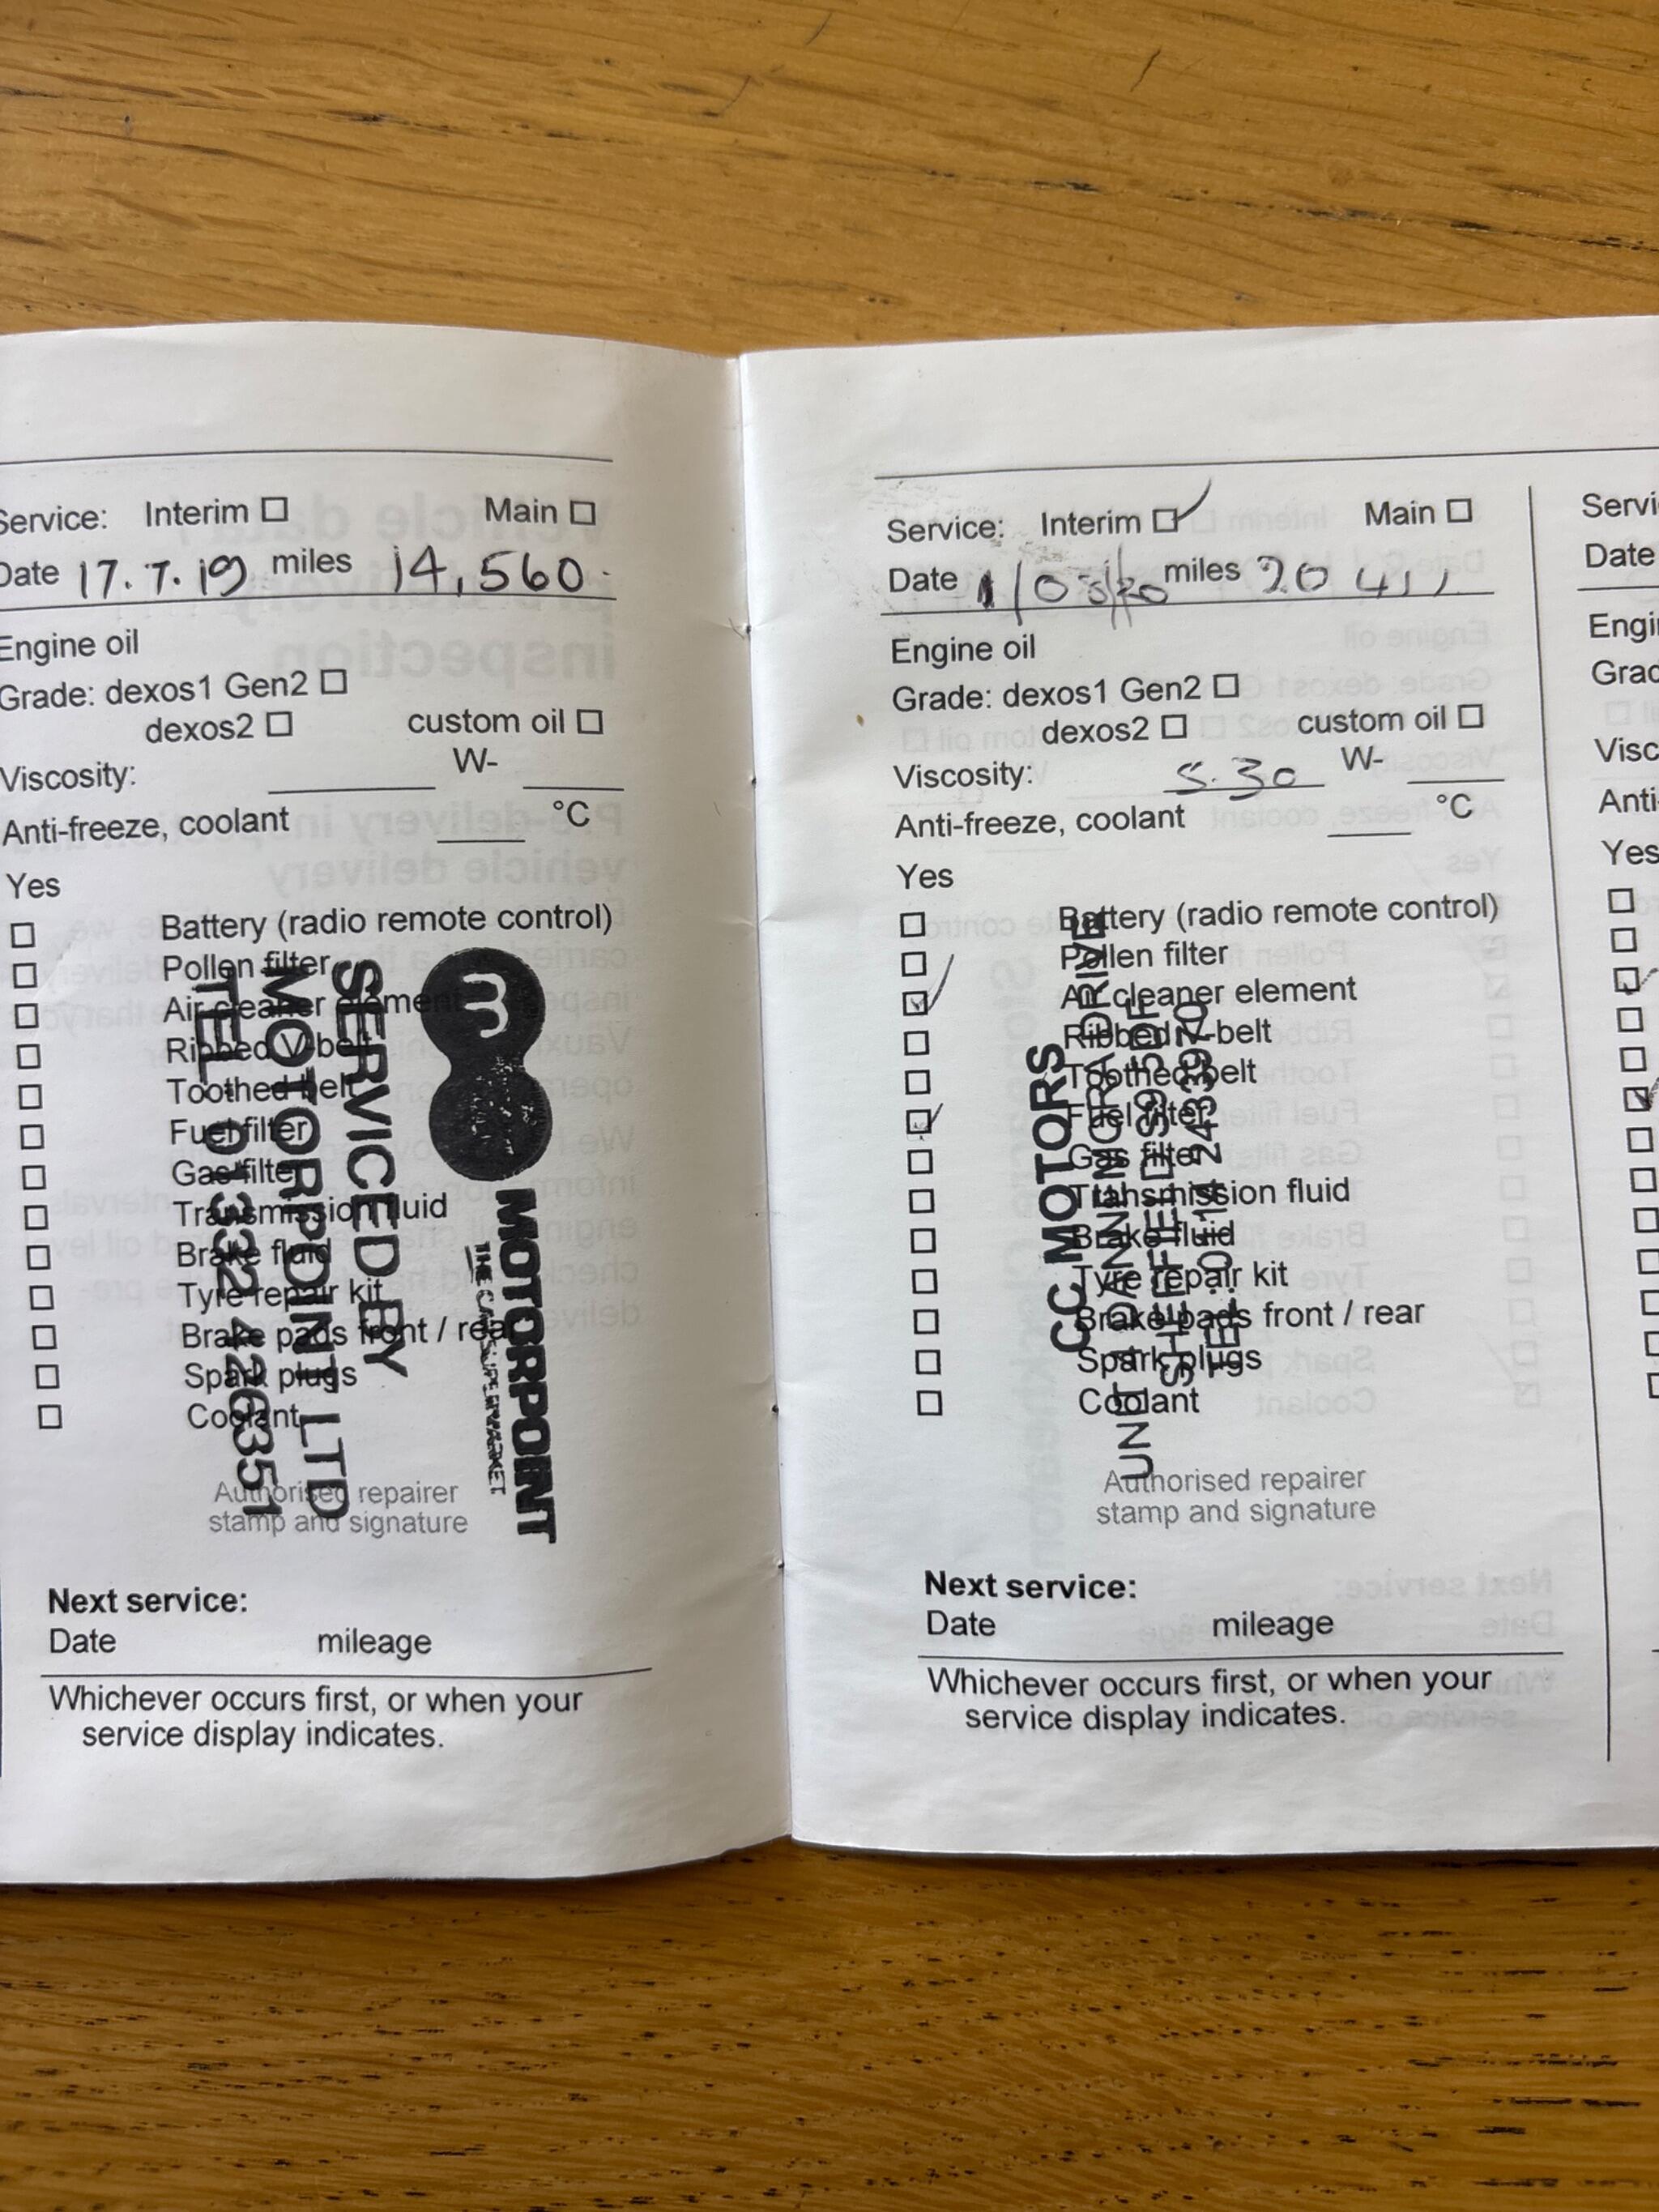 Service: Interim Main
Date 17.7.19 miles 14,560
Engine oil
Grade: dexos1 Gen2
dexos2 custom oil
Viscosity: W-
Anti-freeze, coolant °C
Yes
Battery (radio remote control)
Pollen filter
Air cleaner element
Ribbed V-belt
Toothed belt
Fuel filter
Gas filter
Transmission fluid
Brake fluid
Tyre repair kit
Brake pads front / rear
Spark plugs
Coolant
SERVICED BY
MOTORPOINT LTD
TEL: 01332 426351
m
MOTORPOINT
THE CAR SUPERMARKET
Authorised repairer
stamp and signature
Next service:
Date mileage
Whichever occurs first, or when your
service display indicates.
Service: Interim Main
Date miles
Engine oil
Grade: dexos1 Gen2
dexos2 custom oil
Viscosity: 5-30 W-
Anti-freeze, coolant °C
Yes
Battery (radio remote control)
Pollen filter
Air cleaner element
Ribbed V-belt
Toothed belt
Fuel filter
Gas filter
Transmission fluid
Brake fluid
Tyre repair kit
Brake pads front / rear
Spark plugs
Coolant
CC MOTORS
DRIVE
SHEFFIELD S9 5DF
TEL:
Authorised repairer
stamp and signature
Next service:
Date mileage
Whichever occurs first, or when your
service display indicates.
Date
Yes